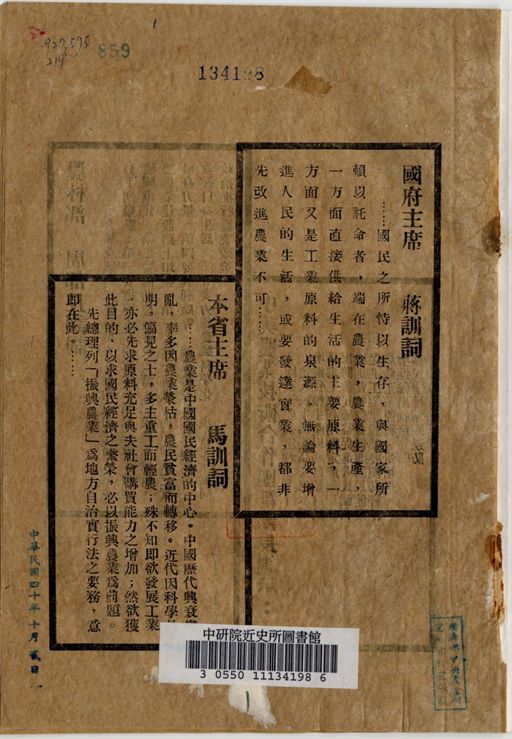 927.575
859
134198
國府主席 蔣訓詞
……國民之所恃以生存，與國家所
賴以託命者，端在農業，農業生產，
一方面直接供給生活的主要原料，一
方面又是工業原料的泉源，無論要增
進人民的生活，或要發達實業，都非
先改進農業不可……
本省主席 馬訓詞
……農業是中國國民經濟的中心。中國歷代興衰
亂，率多因農業榮枯，農民貧富而轉移。近代因科學
明，偏見之士，多主重工而輕農；殊不知即欲發展工業
亦必先求原料充足與夫社會購買能力之增加；然欲獲
此目的，以求國民經濟之繁榮，必以振興農業爲前題。
先總理列「振興農業」爲地方自治實行法之要務，意
即在此。……
中華民國四十年十月貳日
中研院近史所圖書館
3 0550 11134198 6